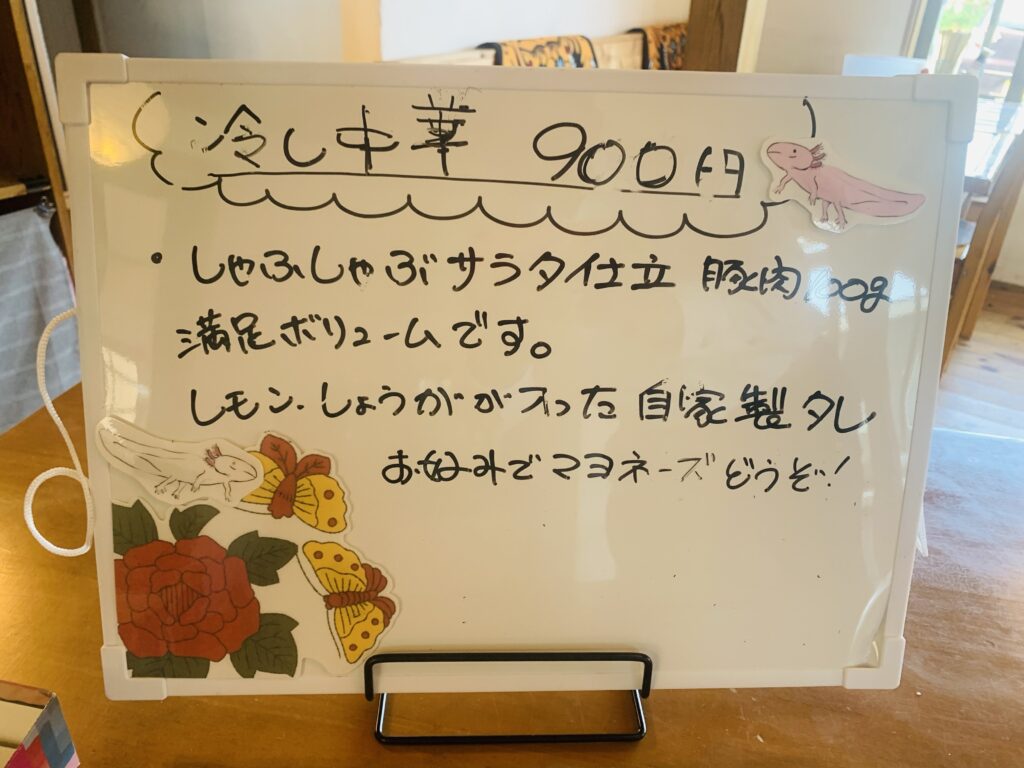 冷し中華 900円
・しゃぶしゃぶサラダ仕立 豚肉100g
満足ボリュームです。
レモン・しょうがが入った自家製タレ
お好みでマヨネーズどうぞ!